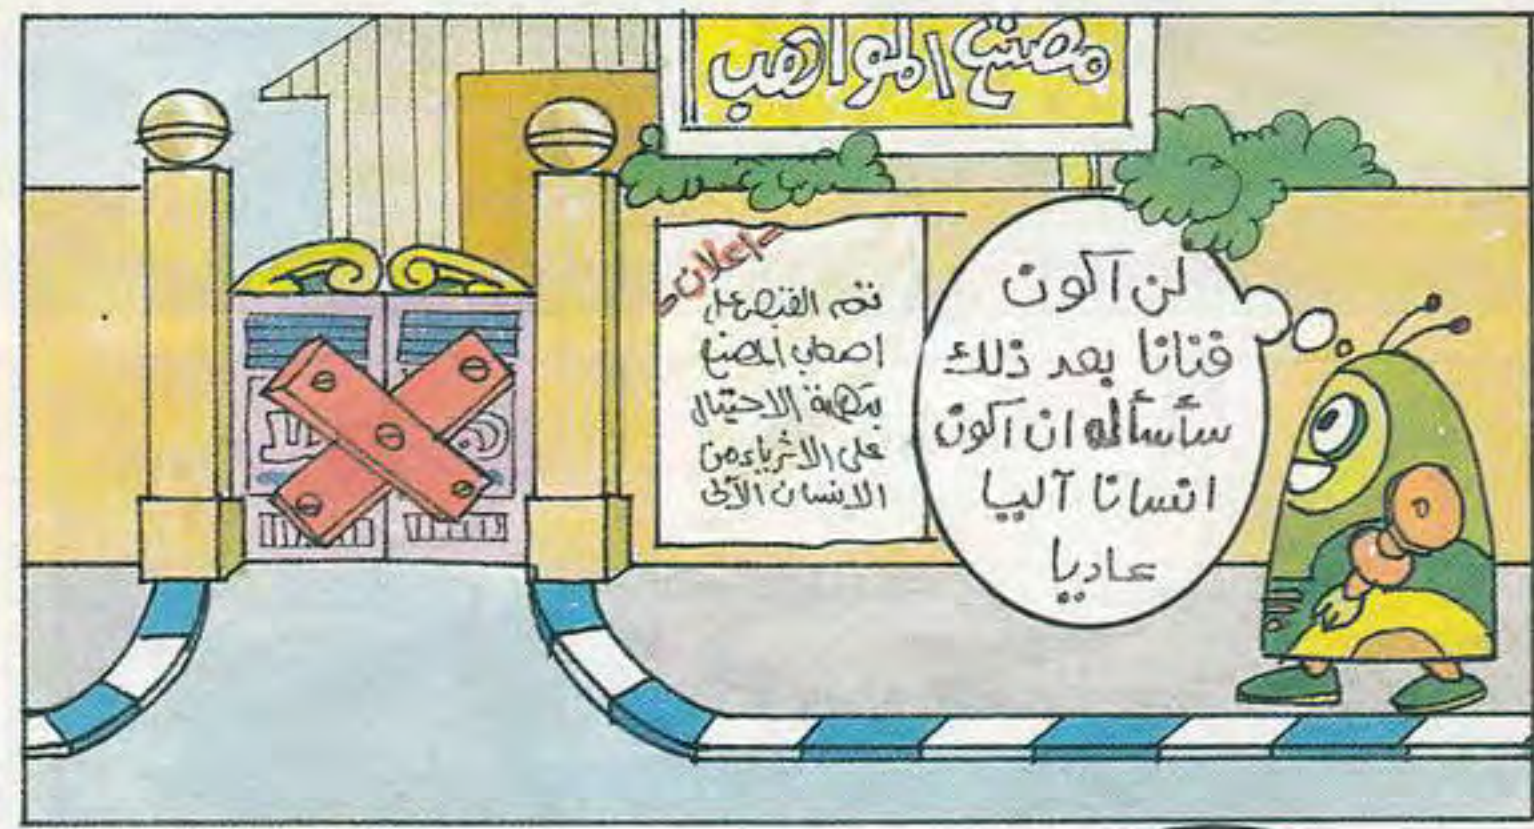 مصنع المواهب
- اعلان -
تم القبض على
اصحاب المصنع
بتهمة الاحتيال
على الاثرياء من
الانسان الآلى
لن آكون
فنانا بعد ذلك
سأسأله ان آكون
انسانا آليا
عاديا